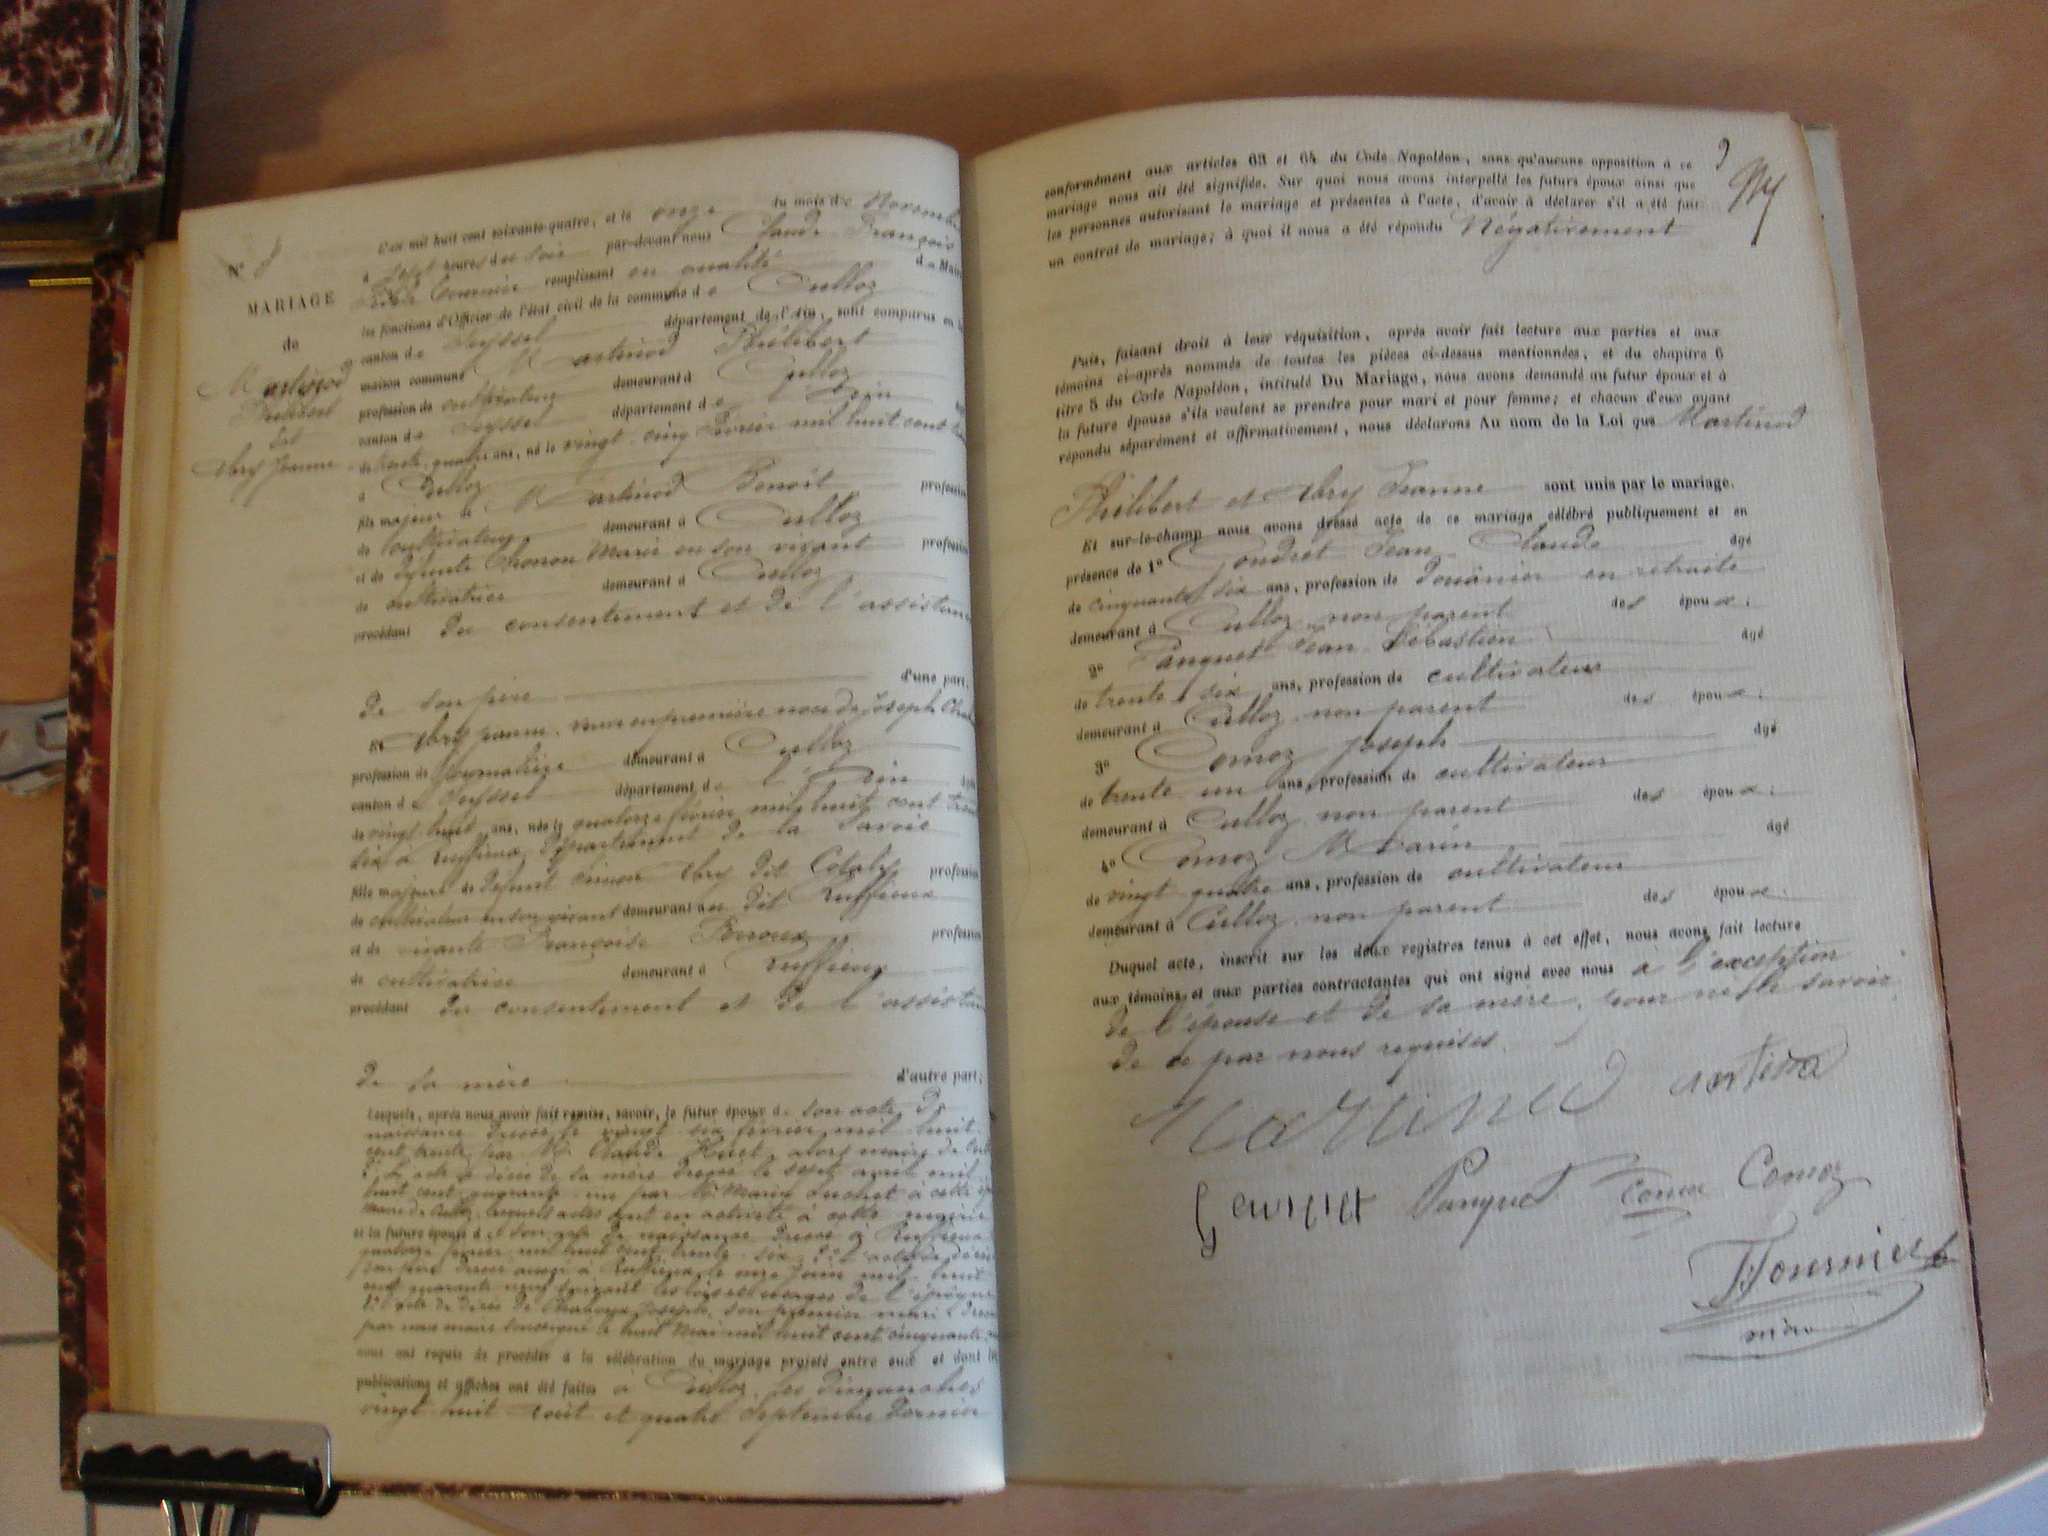 N° 8
MARIAGE
de
Martinod
Philibert
Et
Abry Jeanne
L'an mil huit cent soixante-quatre, et le onze du mois de Novembre
à sept heures du soir par-devant nous Claude François
Fournier remplissant en qualité de Maire
les fonctions d'Officier de l'état civil de la commune de Culloz
canton de Seyssel département de l'Ain, sont comparus en la
maison commune Martinod Philibert
profession de cultivateur demeurant à Culloz
canton de Seyssel département de l'Ain
de trente quatre ans, né le vingt cinq février mil huit cent
à Culloz
fils majeur de Martinod Benoit profession
de cultivateur demeurant à Culloz
et de défunte Marie en son vivant profession
de cultivatrice demeurant à Culloz
procédant du consentement et de l'assistance
de son père d'une part,
Et Abry Jeanne, veuve en première noce de Joseph
profession de journalière demeurant à Culloz
canton de Seyssel département de l'Ain
de vingt huit ans, née le quatorze février mil huit cent trente
six à Ruffieux, département de la Savoie
fille majeure de défunt Abry dit profession
de cultivateur en son vivant demeurant au dit Ruffieux
et de vivante Françoise Perroux profession
de cultivatrice demeurant à Ruffieux
procédant du consentement et de l'assistance
de sa mère d'autre part,
Lesquels, après nous avoir fait remise, savoir, le futur époux de son acte de
naissance dressé le vingt six février mil huit
cent trente par Mr Claude alors maire de
l'acte de décès de sa mère dressé le sept avril mil
huit cent quarante un par Mr Marin à cette
maire de Culloz, lesquels actes sont en activité à cette mairie
et la future épouse de son acte de naissance dressé à Ruffieux
quatorze février mil huit cent trente six, l'acte de décès
dressé aussi à Ruffieux le onze juin mil huit
cent quarante neuf suivant les lois et usages de l'époque
l'acte de décès de Joseph, son premier mari
par nous maire soussigné le huit Mai mil huit cent cinquante
nous ont requis de procéder à la célébration du mariage projeté entre eux et dont les
publications et affiches ont été faites à Culloz, les dimanches
vingt huit août et quatre Septembre dernier
conformément aux articles 63 et 64 du Code Napoléon, sans qu'aucune opposition à ce
mariage nous ait été signifiée. Sur quoi nous avons interpellé les futurs époux ainsi que
les personnes autorisant le mariage et présentes à l'acte, d'avoir à déclarer s'il a été fait
un contrat de mariage; à quoi il nous a été répondu Négativement
Puis, faisant droit à leur réquisition, après avoir fait lecture aux parties et aux
témoins ci-après nommés de toutes les pièces ci-dessus mentionnées, et du chapitre 6
titre 5 du Code Napoléon, intitulé Du Mariage, nous avons demandé au futur époux et à
la future épouse s'ils veulent se prendre pour mari et pour femme; et chacun d'eux ayant
répondu séparément et affirmativement, nous déclarons Au nom de la Loi que Martinod
Philibert et Abry Jeanne sont unis par le mariage.
Et sur-le-champ nous avons dressé acte de ce mariage célébré publiquement et en
présence de 1° Goudret Jean Claude âgé
de cinquante six ans, profession de Douânier en retraite
demeurant à Culloz non parent des époux;
2° Panquet Jean Sébastien âgé
de trente six ans, profession de cultivateur
demeurant à Culloz non parent des époux;
3° Comoz Joseph âgé
de trente un ans, profession de cultivateur
demeurant à Culloz non parent des époux;
4° Comoz Marin âgé
de vingt quatre ans, profession de cultivateur
demeurant à Culloz non parent des époux.
Duquel acte, inscrit sur les deux registres tenus à cet effet, nous avons fait lecture
aux témoins et aux parties contractantes qui ont signé avec nous à l'exception
de l'épouse et de sa mère, pour ne le savoir
de ce par nous requises.
Martinod
Panquet Comoz Comoz
Fournier
maire